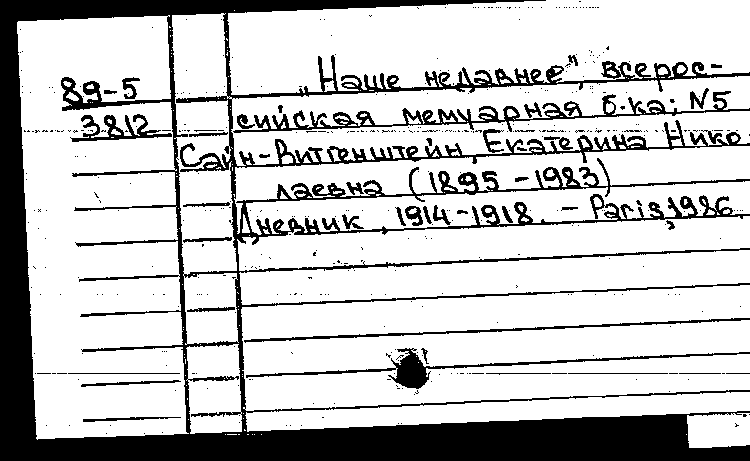 89-5
3812
„Наше недавнее", всерос-
сийская мемуарная б-ка; N5
Сайн-Витгенштейн, Екатерина Нико-
лаевна (1895-1983)
Дневник, 1914-1918. - Paris, 1986.